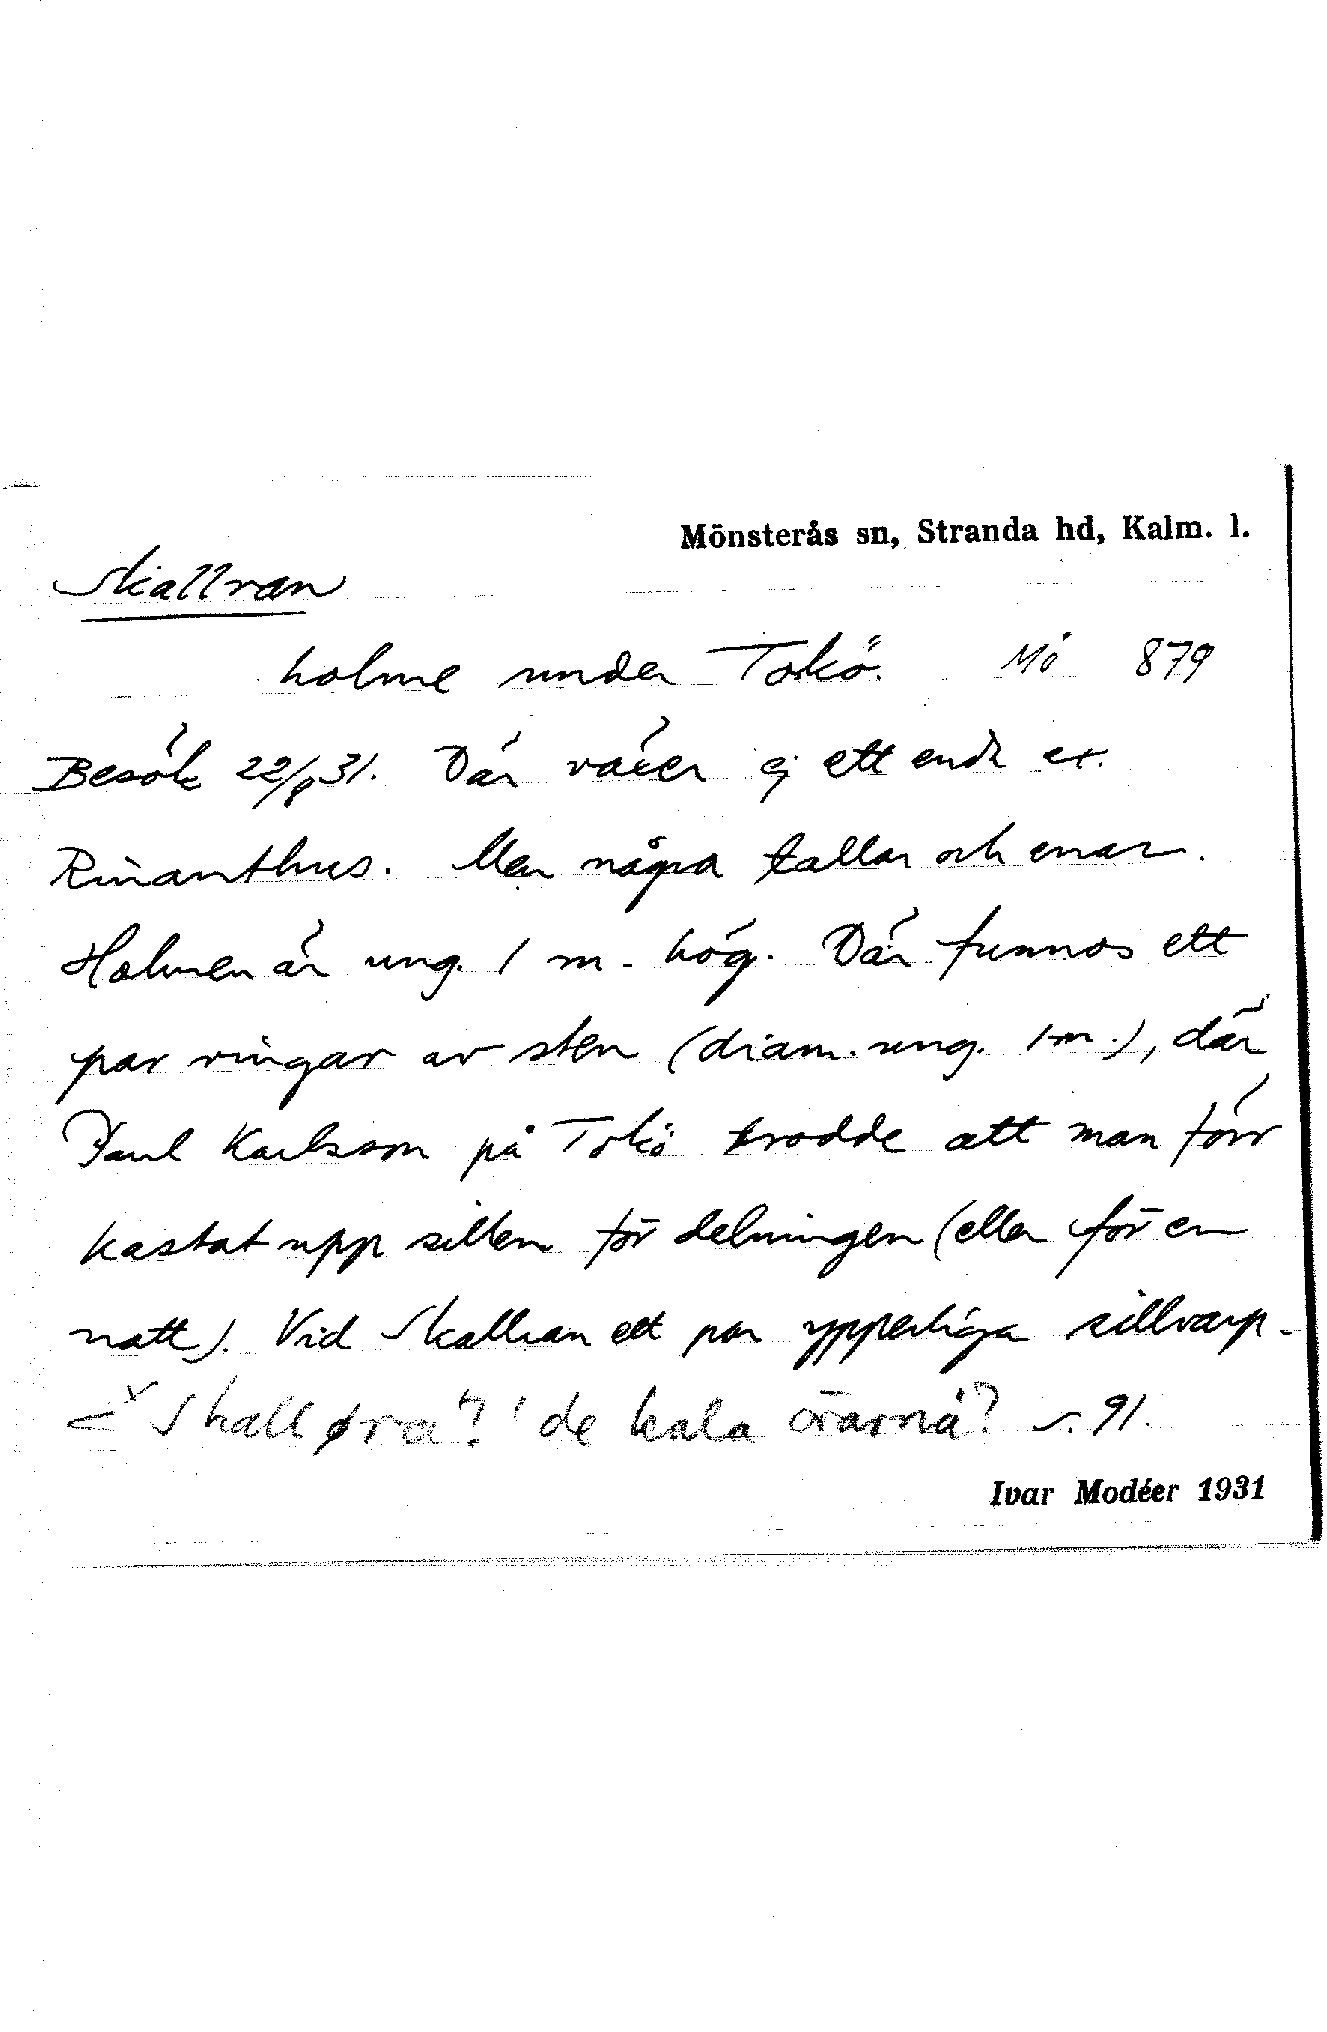 Mönsterås sn, Stranda hd, Kalm. l.
Skallran
holme under Tokö. Mö 879
Besök 22/8 31. Där växer ej ett enda ex.
Rinanthus. Men några tallar och enar.
Holmen är ung. 1 m. hög. Där funnos ett
par ringar av sten (diam. ung. 1 m.), där
Paul Karlsson på Tokö trodde att man förr
kastat upp sillen för delningen (eller för en
natt). Vid Skallran ett par ypperliga sillvarp.
< Skallørra? 'de kala örarna'? s. 91.
Ivar Modéer 1931